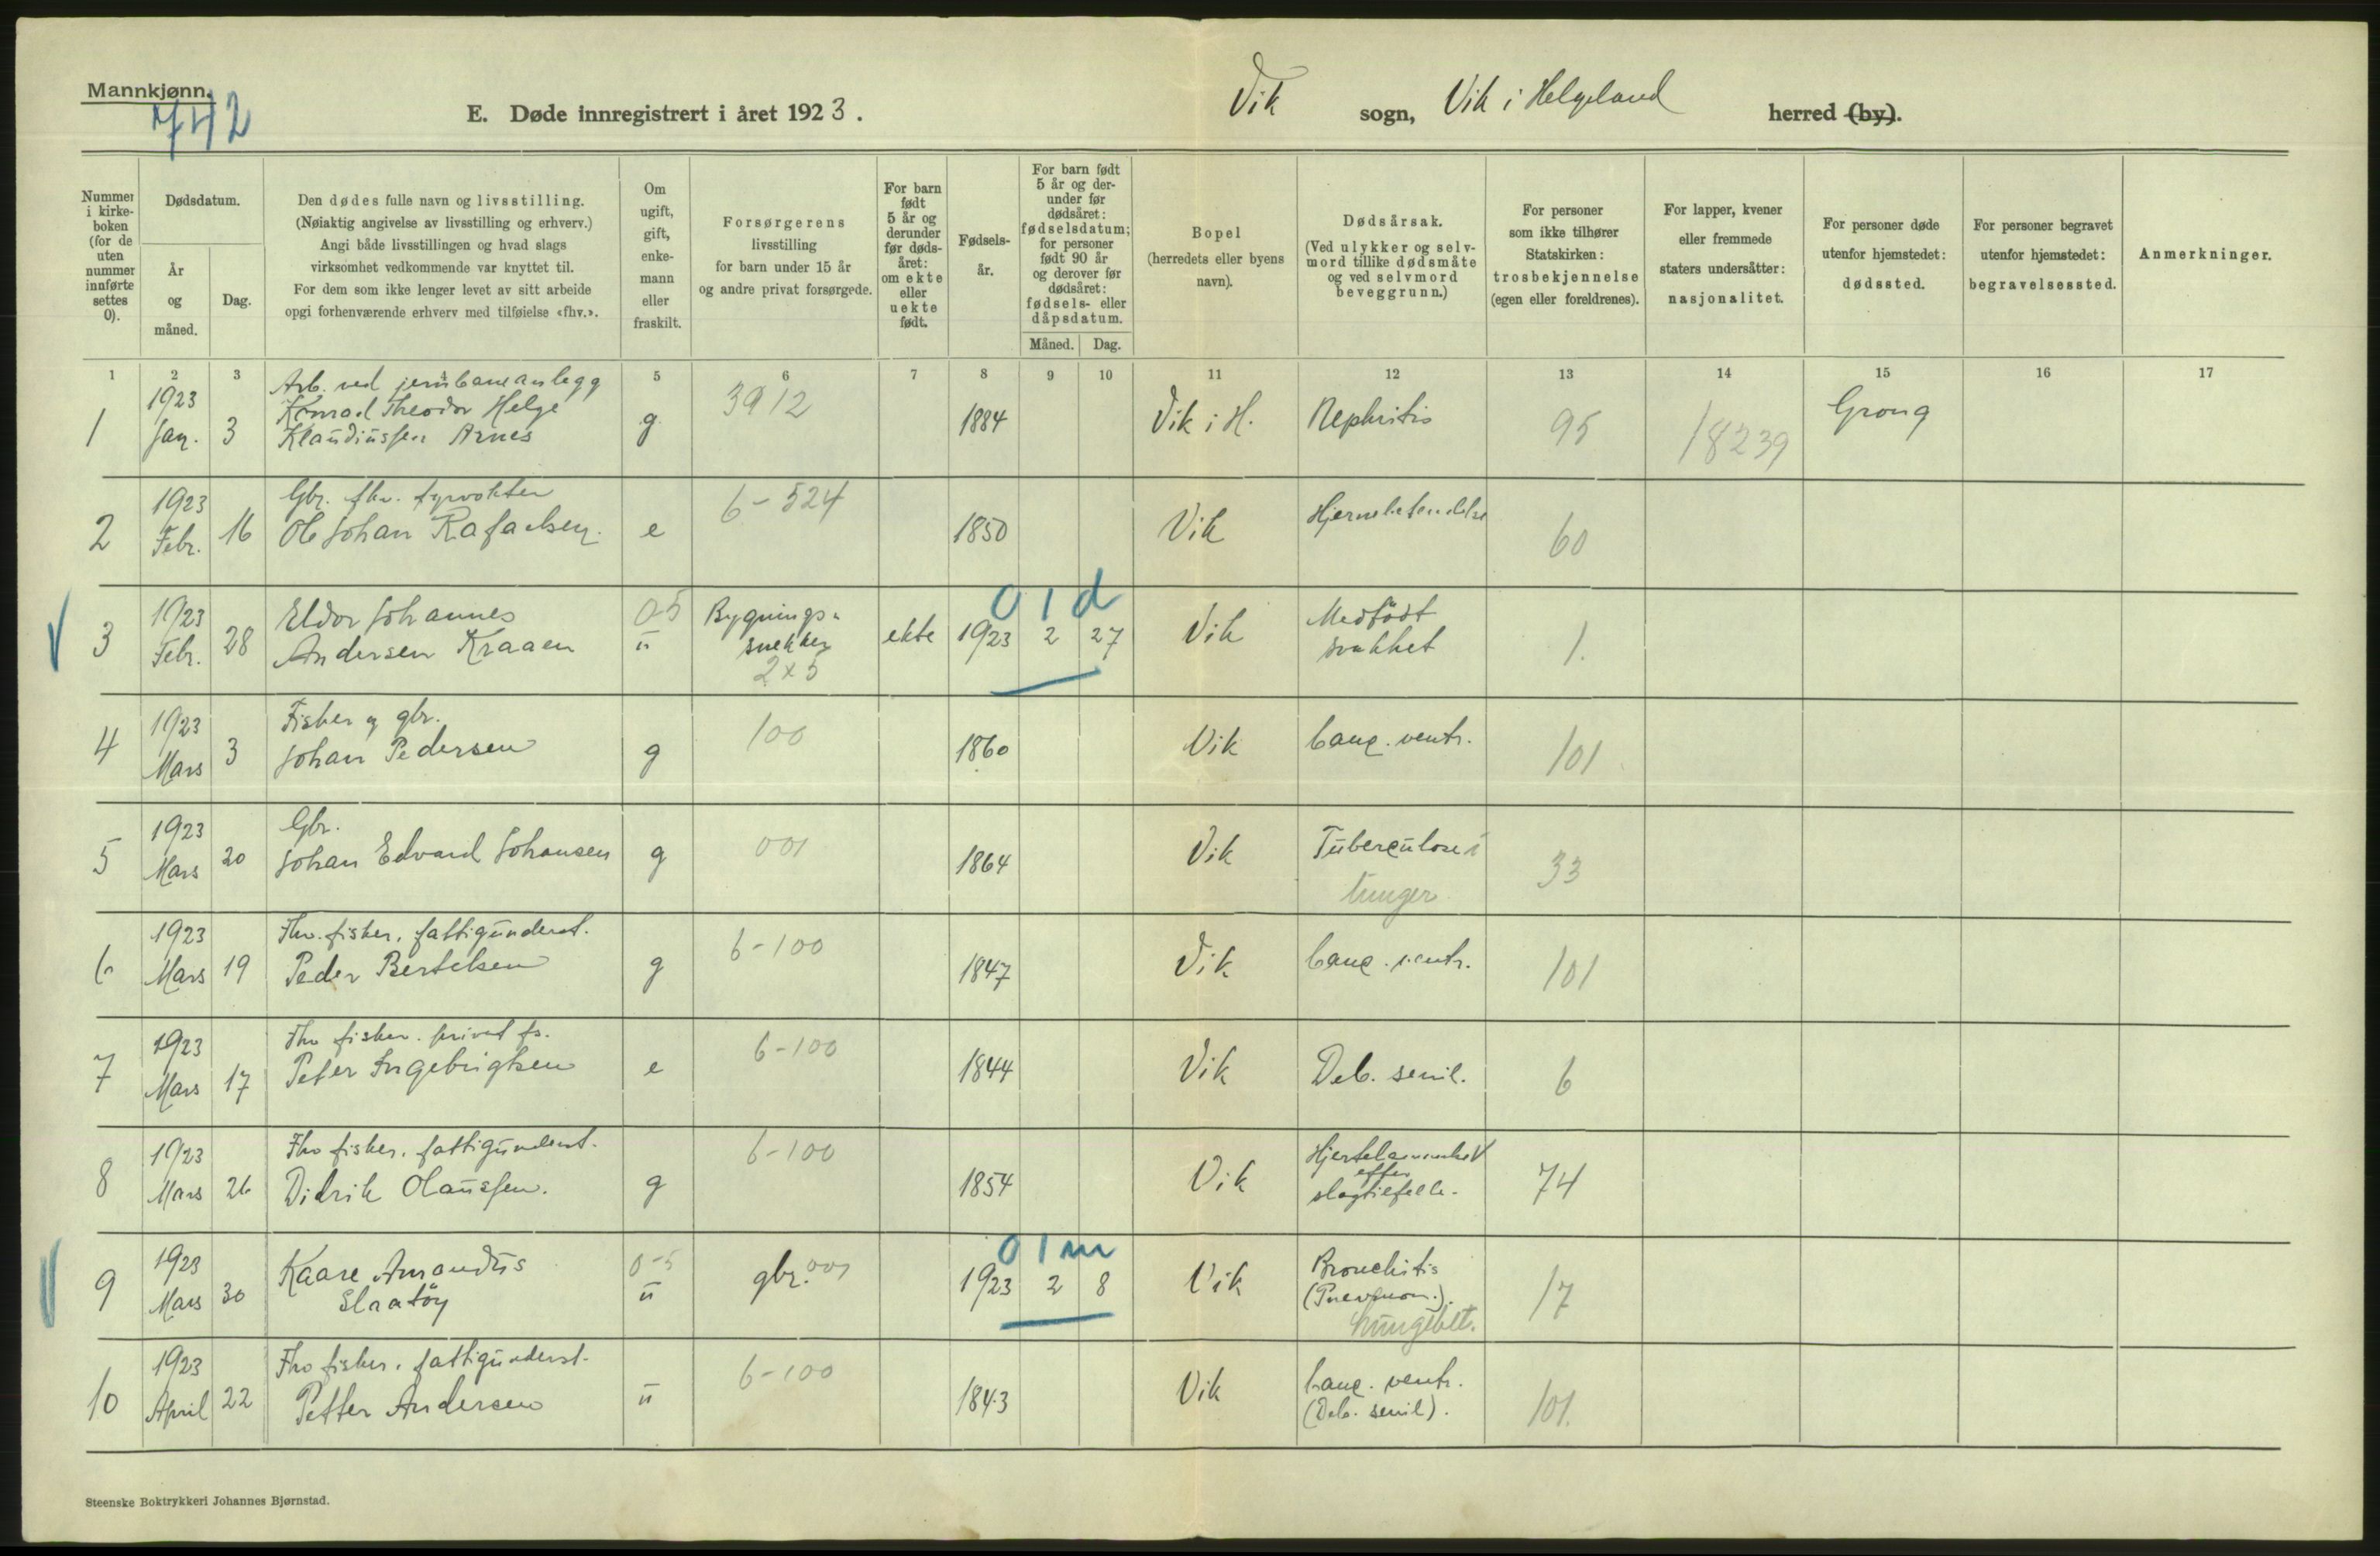 Mannkjønn.
742
E. Døde innregistrert i året 1923.
Vik sogn, Vik i Helgeland herred (by).
Nummer i kirkeboken (for de uten nummer innførte settes 0).
Dødsdatum.
År og måned.
Dag.
Den dødes fulle navn og livsstilling.
(Nøiaktig angivelse av livsstilling og erhverv.)
Angi både livsstillingen og hvad slags
virksomhet vedkommende var knyttet til.
For dem som ikke lenger levet av sitt arbeide
opgi forhenværende erhverv med tilføielse «fhv.».
Om ugift, gift, enkemann eller fraskilt.
Forsørgerens
livsstilling
for barn under 15 år
og andre privat forsørgede.
For barn født 5 år og derunder før dødsåret: om ekte eller uekte født.
Fødselsår.
For barn født 5 år og derunder før dødsåret: fødselsdatum; for personer født 90 år og derover før dødsåret: fødsels- eller dåpsdatum.
Måned. Dag.
Bopel
(herredets eller byens
navn).
Dødsårsak.
(Ved ulykker og selvmord tillike dødsmåte og ved selvmord beveggrunn.)
For personer
som ikke tilhører
Statskirken:
trosbekjennelse
(egen eller foreldrenes).
For lapper, kvener
eller fremmede
staters undersåtter:
nasjonalitet.
For personer døde
utenfor hjemstedet:
dødssted.
For personer begravet
utenfor hjemstedet:
begravelsessted.
Anmerkninger.
1 2 3 4 5 6 7 8 9 10 11 12 13 14 15 16 17
1 1923 Jan. 3 Arb. ved jernbaneanlegg
Konrad Theodor Helge
Klaudiussen Arnes g 3912 1884 Vik i H. Nephritis 95 18239 Grong
2 1923 Febr. 16 Gbr. fhv. fyrvokter
Ole Johan Rafaelsen. e 6-524 1850 Vik Hjernebetendelse 60
3 1923 Febr. 28 Eldor Johannes
Andersen Kraaen 0-5 u Bygnings-
snekker
2x5 ekte 1923 2 27 01d Vik Medfödt
svakhet 1.
4 1923 Mars 3 Fisker og gbr.
Johan Pedersen g 100 1860 Vik Canc. ventr. 101
5 1923 Mars 20 Gbr.
Johan Edvard Johansen g 001 1864 Vik Tuberculose i
lunger 33
6 1923 Mars 19 Fhv. fisker, fattigunderst.
Peder Bertelsen g 6-100 1847 Vik Canc. ventr. 101
7 1923 Mars 17 Fhv fisker. privat fs.
Peter Ingebrigtsen e 6-100 1844 Vik Deb. senil. 6
8 1923 Mars 26 Fhv fisker, fattigunderst.
Didrik Olaussen. g 6-100 1854 Vik
efter
slagtilfelle. 74
9 1923 Mars 30 Kaare Amandus
0-5 u gbr. 001 1923 2 8 01m Vik Bronchitis
(Pneumon.).
Lungebet. 17
10 1923 April 22 Fhv fisker, fattigunderst.
Petter Andersen u 6-100 1843 Vik Canc. ventr.
(Deb. senil). 101.
Steenske Boktrykkeri Johannes Bjørnstad.